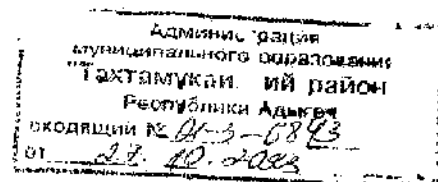 Администрация
муниципального образования
"Тахтамукайский район
Республики Адыгея
входящий № 01-3-6843
от 27. 10. 2023